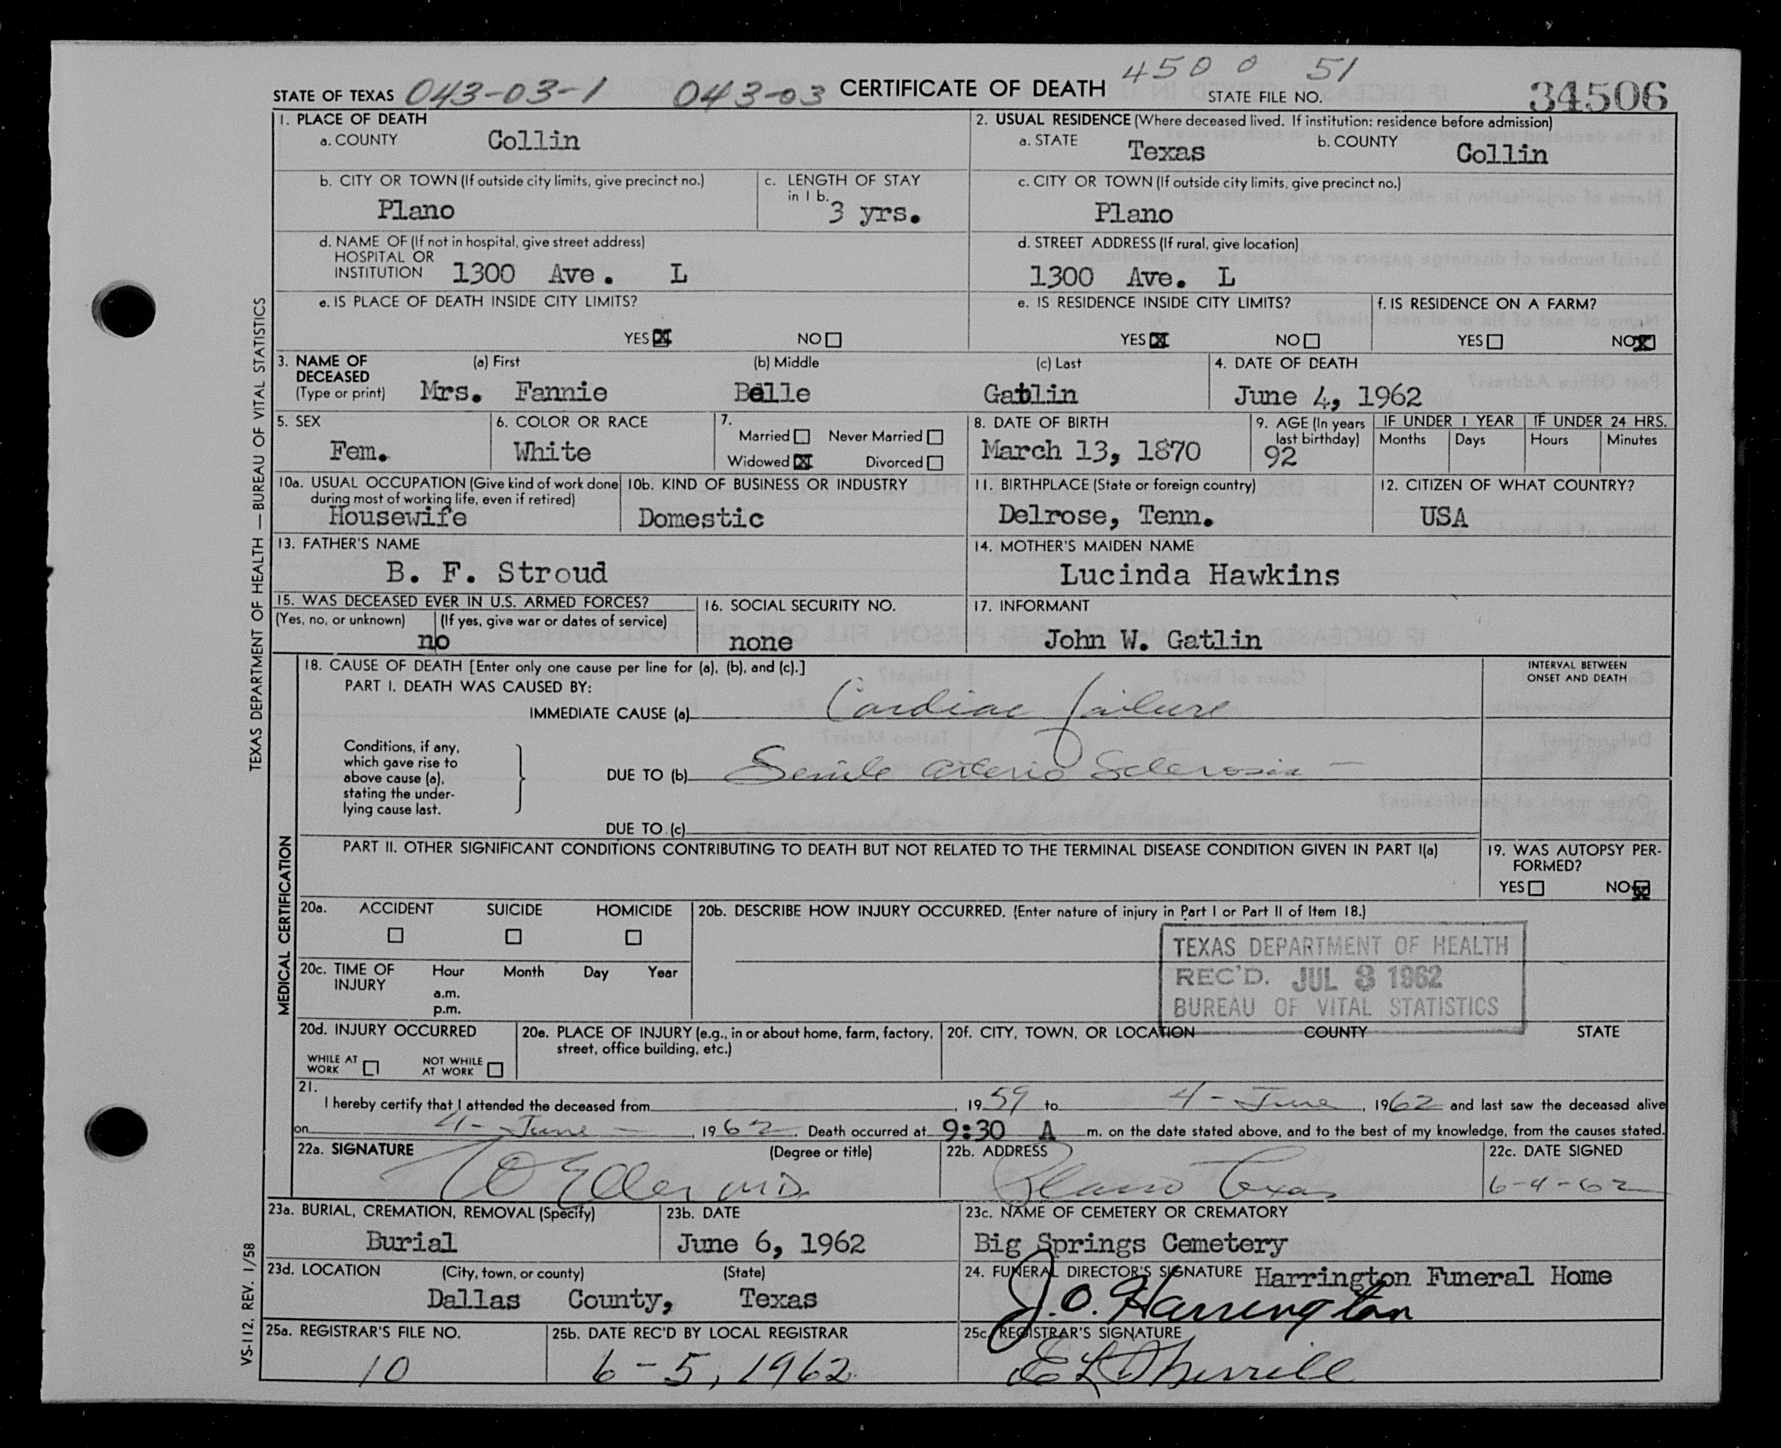 450 0 51
STATE OF TEXAS 043-03-1 043-03 CERTIFICATE OF DEATH STATE FILE NO. 34506
TEXAS DEPARTMENT OF HEALTH — BUREAU OF VITAL STATISTICS
1. PLACE OF DEATH
a. COUNTY Collin
2. USUAL RESIDENCE (Where deceased lived. If institution: residence before admission)
a. STATE Texas b. COUNTY Collin
b. CITY OR TOWN (If outside city limits, give precinct no.)
Plano
c. LENGTH OF STAY
in 1 b. 3 yrs.
c. CITY OR TOWN (If outside city limits, give precinct no.)
Plano
d. NAME OF (If not in hospital, give street address)
HOSPITAL OR
INSTITUTION 1300 Ave. L
d. STREET ADDRESS (If rural, give location)
1300 Ave. L
e. IS PLACE OF DEATH INSIDE CITY LIMITS?
YES NO
e. IS RESIDENCE INSIDE CITY LIMITS?
YES NO
f. IS RESIDENCE ON A FARM?
YES NO
3. NAME OF DECEASED (Type or print)
(a) First (b) Middle (c) Last
Mrs. Fannie Belle Gatlin
4. DATE OF DEATH
June 4, 1962
5. SEX
Fem.
6. COLOR OR RACE
White
7.
Married Never Married
Widowed Divorced
8. DATE OF BIRTH
March 13, 1870
9. AGE (In years
last birthday)
92
IF UNDER 1 YEAR IF UNDER 24 HRS.
Months Days Hours Minutes
10a. USUAL OCCUPATION (Give kind of work done
during most of working life, even if retired)
Housewife
10b. KIND OF BUSINESS OR INDUSTRY
Domestic
11. BIRTHPLACE (State or foreign country)
Delrose, Tenn.
12. CITIZEN OF WHAT COUNTRY?
USA
13. FATHER'S NAME
B. F. Stroud
14. MOTHER'S MAIDEN NAME
Lucinda Hawkins
15. WAS DECEASED EVER IN U.S. ARMED FORCES?
(Yes, no, or unknown) (If yes, give war or dates of service)
no
16. SOCIAL SECURITY NO.
none
17. INFORMANT
John W. Gatlin
MEDICAL CERTIFICATION
18. CAUSE OF DEATH [Enter only one cause per line for (a), (b), and (c).]
INTERVAL BETWEEN
ONSET AND DEATH
PART I. DEATH WAS CAUSED BY:
IMMEDIATE CAUSE (a) Cardiac failure
Conditions, if any,
which gave rise to
above cause (a),
stating the under-
lying cause last.
DUE TO (b) Senile arterio Sclerosis —
DUE TO (c)
PART II. OTHER SIGNIFICANT CONDITIONS CONTRIBUTING TO DEATH BUT NOT RELATED TO THE TERMINAL DISEASE CONDITION GIVEN IN PART I(a)
19. WAS AUTOPSY PER-
FORMED?
YES NO
20a. ACCIDENT SUICIDE HOMICIDE
20b. DESCRIBE HOW INJURY OCCURRED. (Enter nature of injury in Part I or Part II of Item 18.)
TEXAS DEPARTMENT OF HEALTH
REC'D. JUL 3 1962
BUREAU OF VITAL STATISTICS
20c. TIME OF
INJURY
Hour Month Day Year
a.m.
p.m.
20d. INJURY OCCURRED
WHILE AT
WORK
NOT WHILE
AT WORK
20e. PLACE OF INJURY (e.g., in or about home, farm, factory,
street, office building, etc.)
20f. CITY, TOWN, OR LOCATION COUNTY STATE
21.
I hereby certify that I attended the deceased from , 1959 to 4 - June , 1962 and last saw the deceased alive
on 4 - June - , 1962. Death occurred at 9:30 A m. on the date stated above, and to the best of my knowledge, from the causes stated.
22a. SIGNATURE (Degree or title)
M.D.
22b. ADDRESS
Plano Texas
22c. DATE SIGNED
6-4-62
23a. BURIAL, CREMATION, REMOVAL (Specify)
Burial
23b. DATE
June 6, 1962
23c. NAME OF CEMETERY OR CREMATORY
Big Springs Cemetery
23d. LOCATION (City, town, or county) (State)
Dallas County, Texas
24. FUNERAL DIRECTOR'S SIGNATURE Harrington Funeral Home
J.O. Harrington
25a. REGISTRAR'S FILE NO.
10
25b. DATE REC'D BY LOCAL REGISTRAR
6-5, 1962
25c. REGISTRAR'S SIGNATURE
VS-112, REV. 1/58